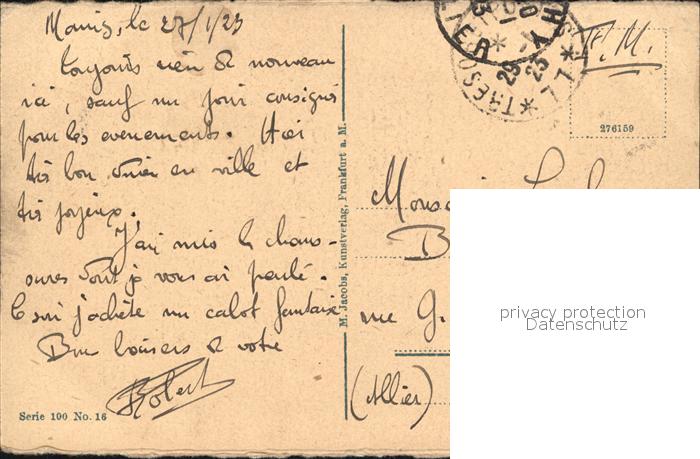 le 27/1/23
toujours rien de nouveau
ici, sauf un jour consignés
pour les evenements. Hier
très bon dîner en ville et
très joyeux.
J'ai mis le chaus-
sures dont je vous ai parlé.
Ce soir j'achète un calot fantaisie
Bons baisers de votre
Robert
Serie 100 No. 16
M. Jacobs, Kunstverlag, Frankfurt a. M.
TRESOR
77
F. M.
276159
rue G.
(Allier)
privacy protection
Datenschutz